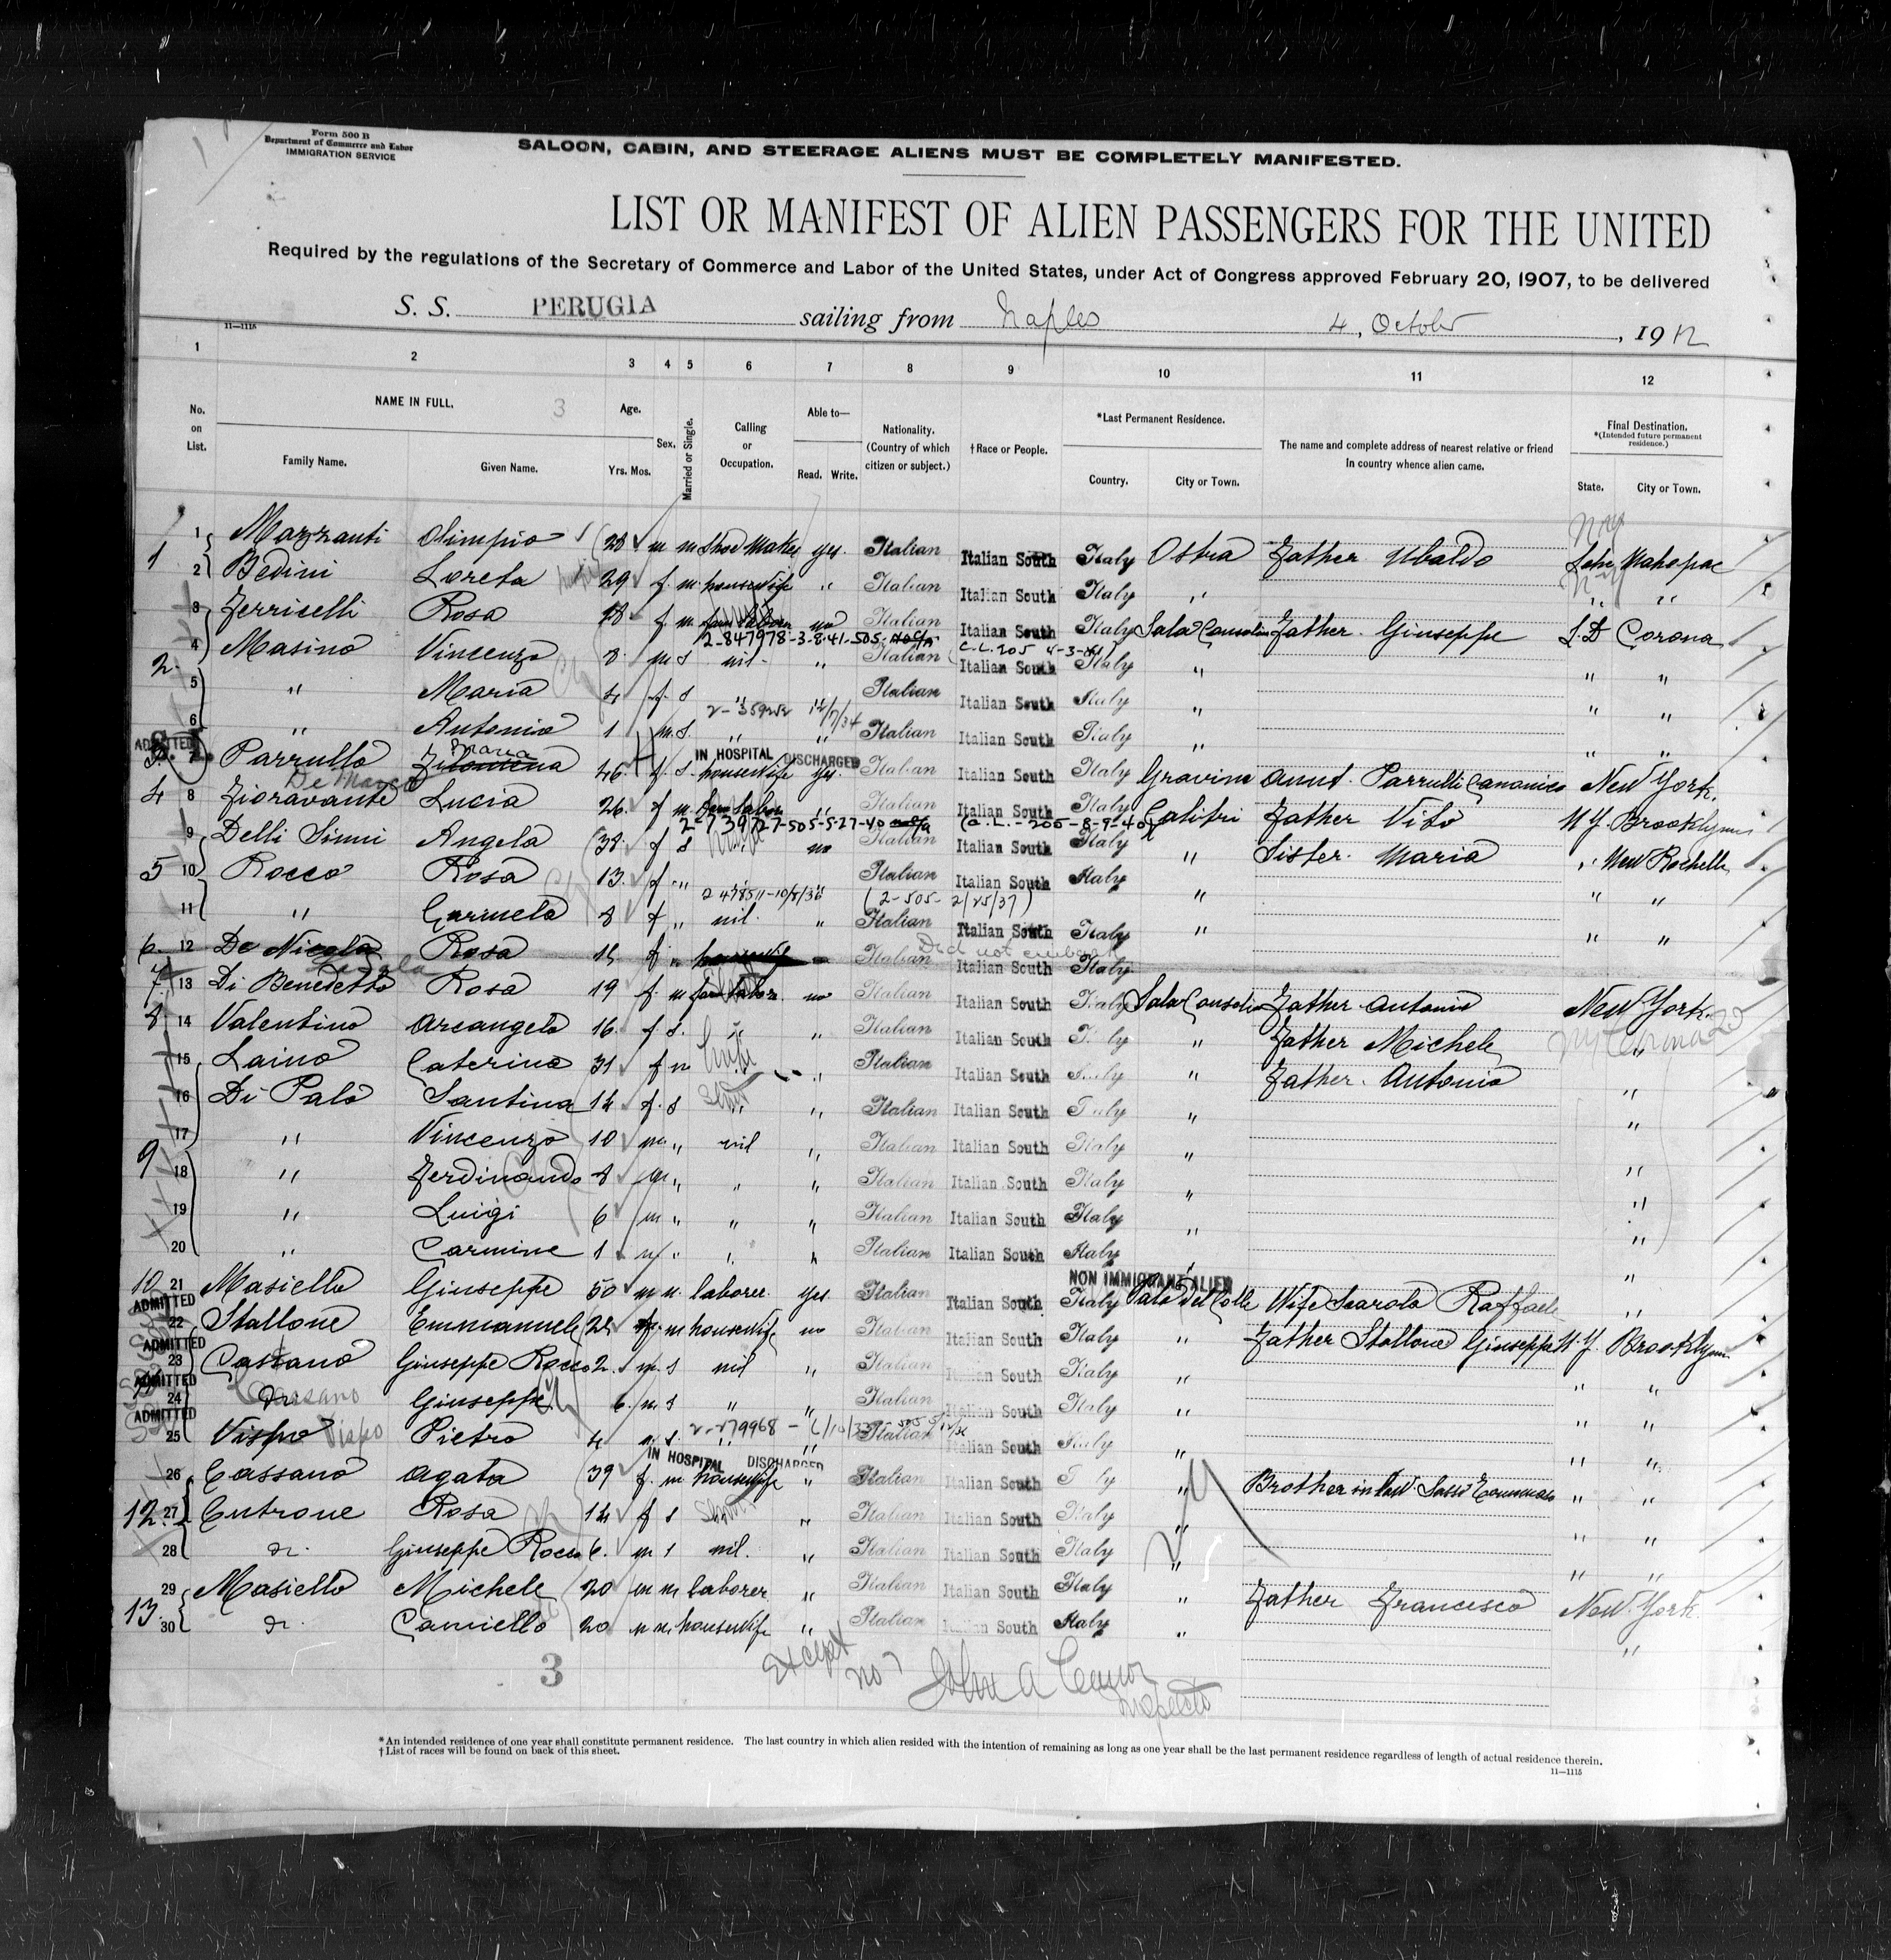 Form 500 B
Department of Commerce and Labor
IMMIGRATION SERVICE
SALOON, CABIN, AND STEERAGE ALIENS MUST BE COMPLETELY MANIFESTED.
LIST OR MANIFEST OF ALIEN PASSENGERS FOR THE UNITED
Required by the regulations of the Secretary of Commerce and Labor of the United States, under Act of Congress approved February 20, 1907, to be delivered
S. S. PERUGIA sailing from Naples 4, October, 1912
11—1115
1 2 3 4 5 6 7 8 9 10 11 12
No. on List.
NAME IN FULL. 3
Family Name. Given Name.
Age.
Yrs. Mos.
Sex.
Married or Single.
Calling or Occupation.
Able to—
Read. Write.
Nationality. (Country of which citizen or subject.)
†Race or People.
*Last Permanent Residence.
Country. City or Town.
The name and complete address of nearest relative or friend in country whence alien came.
Final Destination.
*(Intended future permanent residence.)
State. City or Town.
1 1 Mazzanti Olimpio 28 m m Shoe Maker yes. Italian Italian South Italy Ostra Father Ubaldo Mahopac
2 Bedini Loreta 29 f. m. housewife " Italian Italian South Italy " " "
3 Ferricelli Rosa 28 f. m. no Italian Italian South Italy Sala Consolin Father Giuseppe Corona
2-847978-3-8-41-505
2 4 Masino Vincenzo 8 m S nil " Italian Italian South Italy " " "
5 " Maria 4 f. S " Italian Italian South Italy " " "
6 " Antonio 1 m. S. " " Italian Italian South Italy " " "
ADMITTED IN HOSPITAL DISCHARGED
7 Parrullo Filomena Maria 46 f. S. housewife yes. Italian Italian South Italy Gravina Aunt Parrulli Canonico New York.
De Marco
4 8 Fioravante Lucia 26 f m. farm labor " Italian Italian South Italy Calitri Father Vito N Y. Brooklyn
2-739727-505-5-27-40
9 Delli Sinni Angela 38 f S no Italian Italian South Italy " Sister Maria " New Rochelle
5 10 Rocco Rosa 13 f " Italian Italian South Italy " " "
(2-505- 2/25/37)
11 " Carmela 8 f " nil. " Italian Italian South Italy " " "
6 12 De Nicola Rosa f " Italian Italian South Italy
Did not embark
7 13 Di Benedetto Rosa 19 f. m farm labor. no Italian Italian South Italy Sala Consolin Father Antonio New York.
8 14 Valentino Arcangela 16 f S. " " Italian Italian South Italy " Father Michele "
15 Laino Caterina 31 f m " Italian Italian South Italy " Father Antonio "
16 Di Palo Santina 14 f. S " " Italian Italian South Italy " "
17 " Vincenzo 10 m " nil " Italian Italian South Italy " "
9 18 " Ferdinando 8 m " " " Italian Italian South Italy " "
19 " Luigi 6 m " " " Italian Italian South Italy " "
20 " Carmine 1 m " " " Italian Italian South Italy " "
NON IMMIGRANT ALIEN
10 21 Masiello Giuseppe 50 m m. laborer. yes Italian Italian South Italy Palo Del Colle Wife Scarola Raffaele "
ADMITTED
22 Stallone Emmanuele f. m housewife no Italian Italian South Italy " Father Stallone Giuseppe N. Y. Brooklyn
ADMITTED
23 Cassano Giuseppe Rocco 2 m. S nil " Italian Italian South Italy " " "
ADMITTED
24 Cassano Giuseppe 6 m S " " Italian Italian South Italy " " "
ADMITTED
25 Vispo Vispo Pietro 4 m S. " " Italian Italian South Italy " " "
IN HOSPITAL DISCHARGED
26 Cassano Agata 39 f. m housewife " Italian Italian South Italy " Brother in law " "
12 27 Cutrone Rosa 14 f S " Italian Italian South Italy " " "
28 Giuseppe Rocco 6 m S nil. " Italian Italian South Italy " " "
29 Masiello Michele 20 m m laborer " Italian Italian South Italy " Father Francesco New York
13 30 Camiello 20 m m. housewife " Italian Italian South Italy " "
3 Except no 7 John A
Inspector
*An intended residence of one year shall constitute permanent residence. The last country in which alien resided with the intention of remaining as long as one year shall be the last permanent residence regardless of length of actual residence therein.
†List of races will be found on back of this sheet.
11—1115